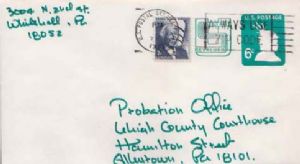 3004 N. 2nd St.
Whitehall, Pa
18052
U.S. POSTAL
ALWAYS USE
ZIP CODE
U.S. POSTAGE
6¢
Probation Office
Lehigh County Courthouse
Hamilton Street
Allentown, Pa. 18101.